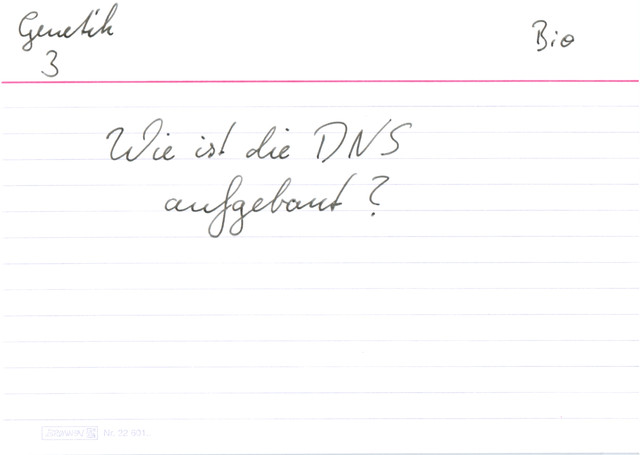 Genetik
3
Bio
Wie ist die DNS
aufgebaut?
BRUNNEN Nr. 22 901